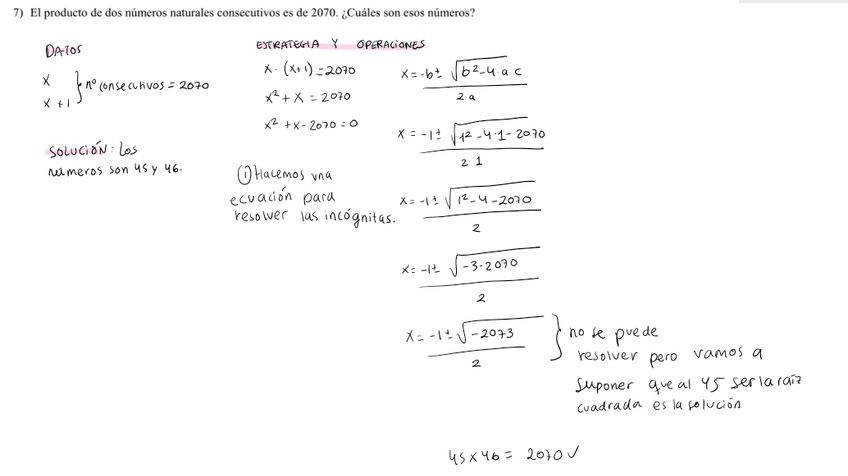 7) El producto de dos números naturales consecutivos es de 2070. ¿Cuáles son esos números?
DATOS
x
x +1
} nº consecutivos = 2070
SOLUCIÓN: Los
números son 45 y 46.
ESTRATEGIA Y OPERACIONES
x · (x+1) = 2070
x² + x = 2070
x² + x - 2070 = 0
① Hacemos una
ecuación para
resolver las incógnitas.
x = -b ± √b² - 4 · a c
2 · a
x = -1 ± √1² - 4 · 1 - 2070
2 1
x = -1 ± √1² - 4 - 2070
2
x = -1 ± √-3 - 2070
2
x = -1 ± √-2073
2
} no se puede
resolver pero vamos a
suponer que al 45 ser la raíz
cuadrada es la solución
45 x 46 = 2070 ✓